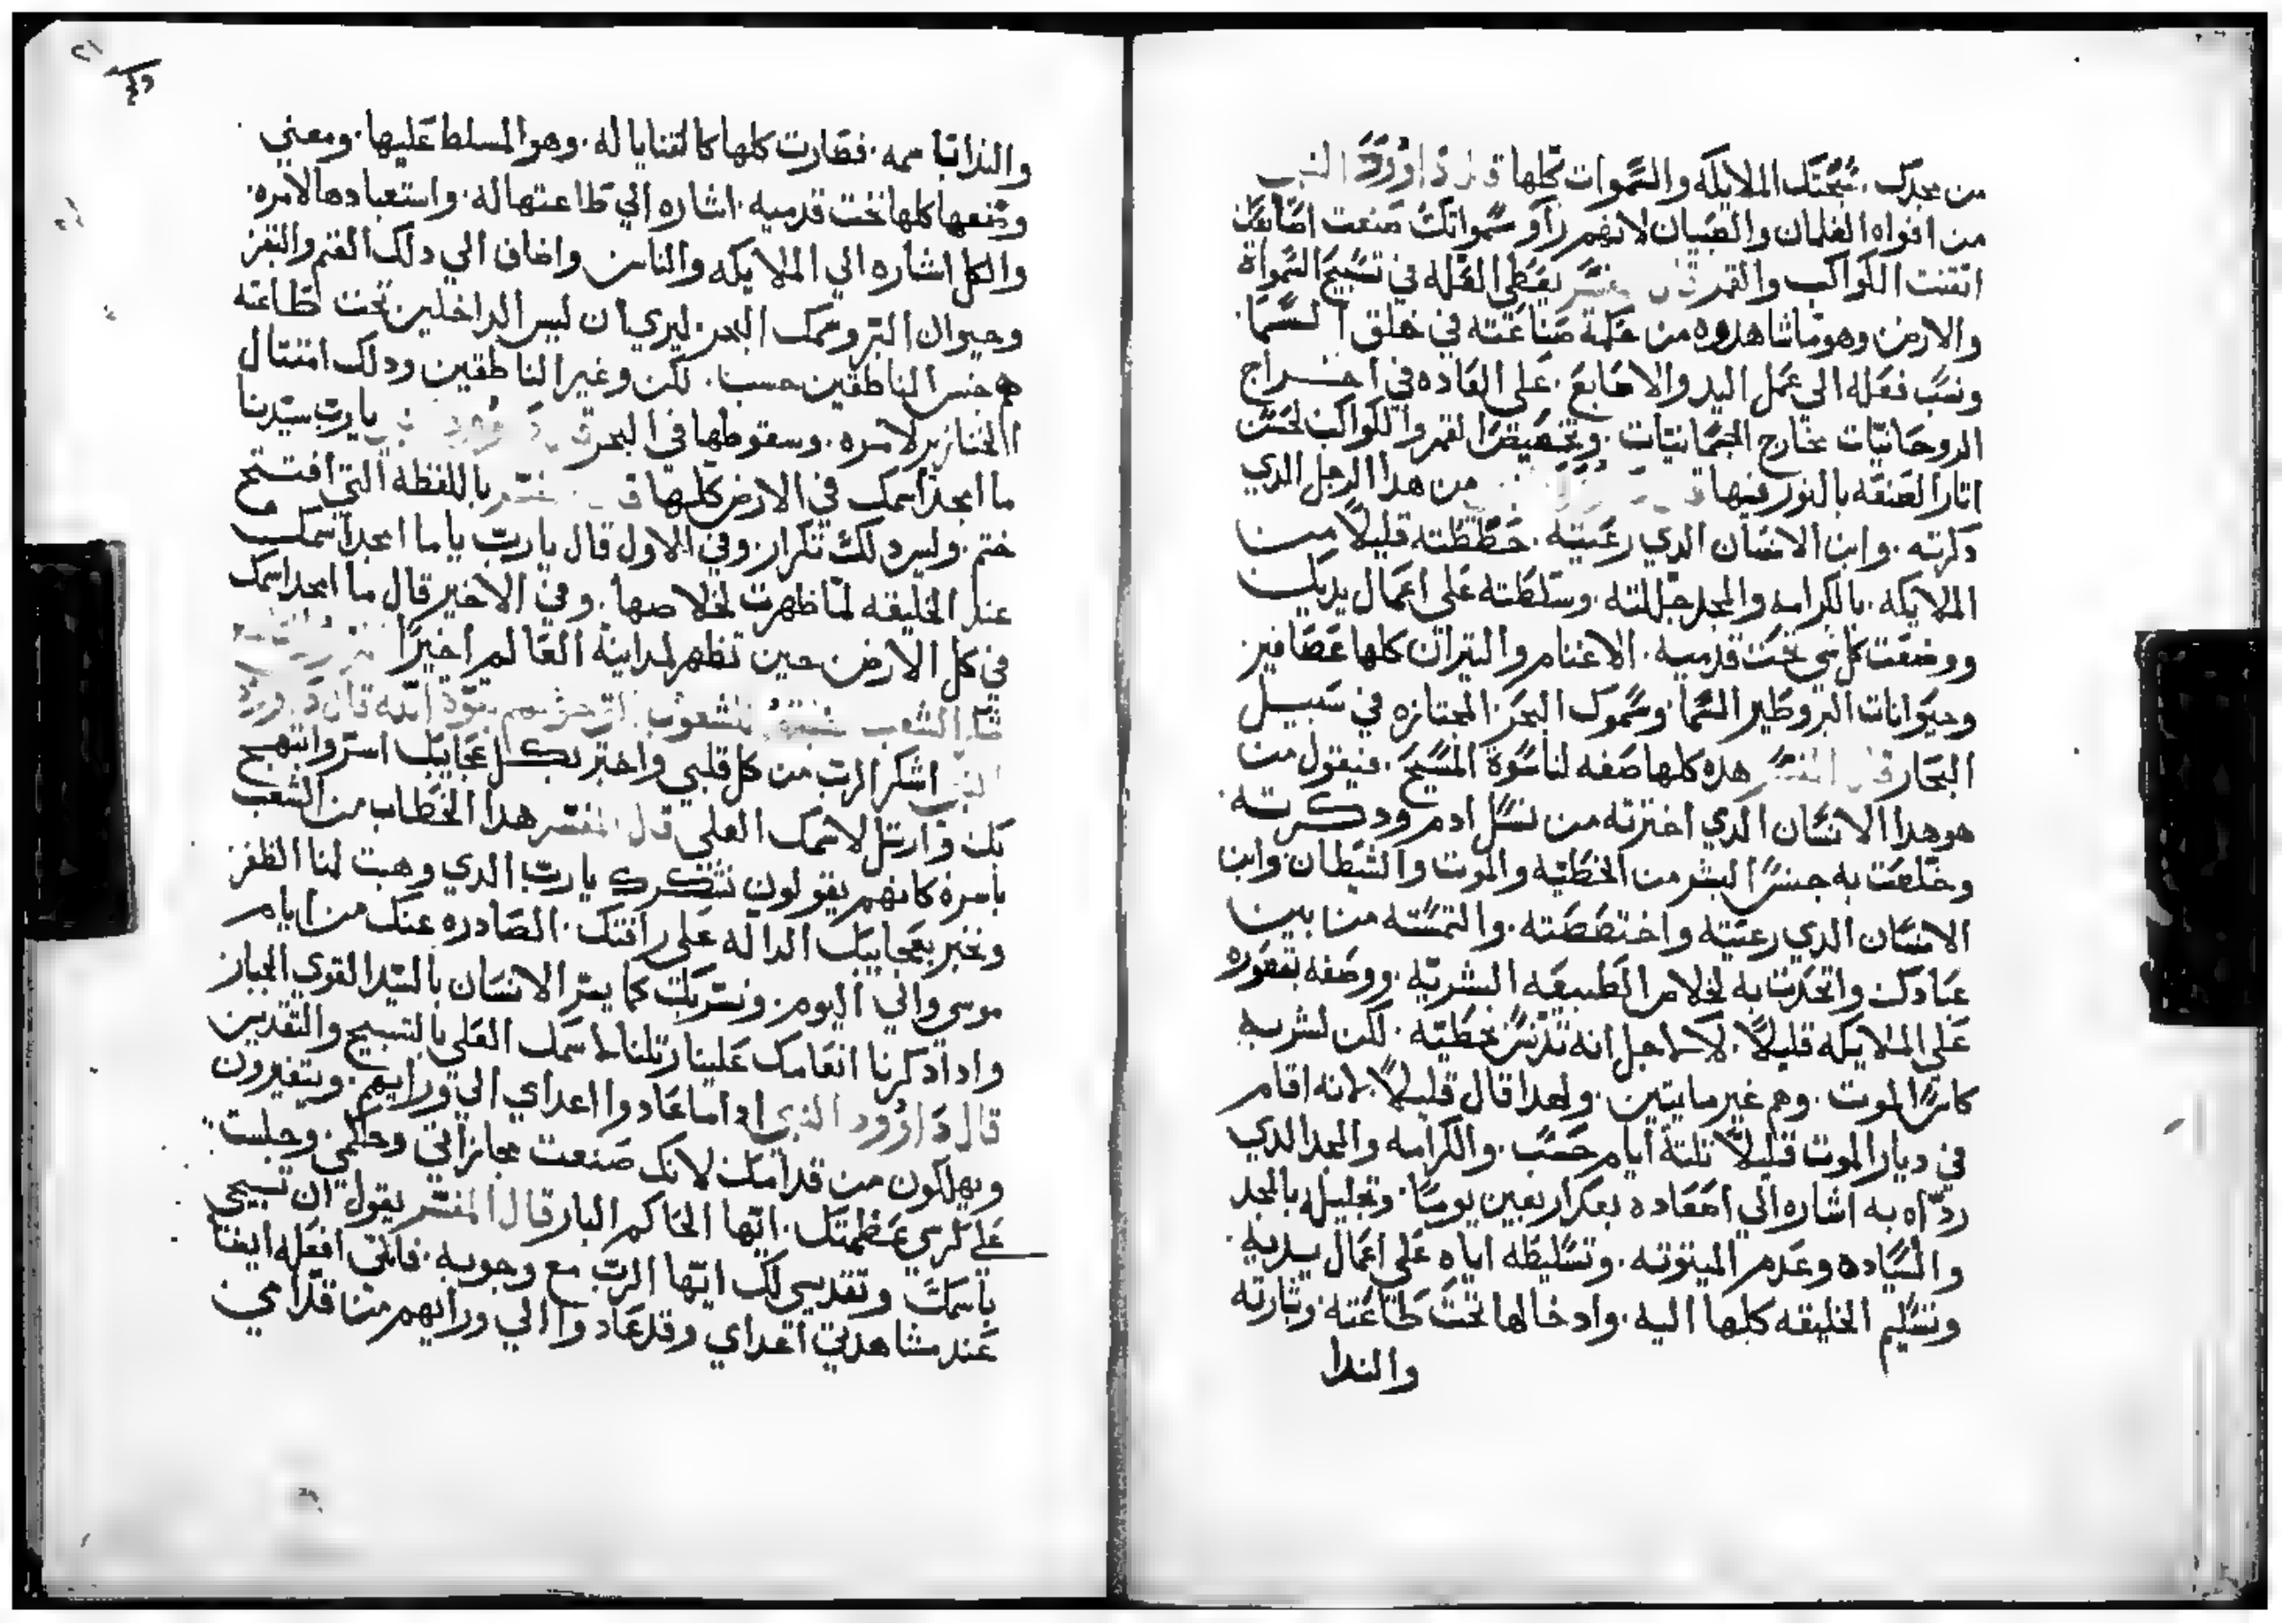 من مجدك. سبحتك الملايكه والسموات كلها قال داوود النبي
من افواه الغلمان والصبيان لانهم رأو سمواتك صنعت اصابعك
اتقنت الكواكب والقمر قال المفسر يعطي العله في تسبيح السمواة
والارض وهو ما شاهدوه من حكمة صناعته في خلق السما.
ونسب فعله الي عمل اليد والاصابع. على العاده في اخراج
الروحانيات مخارج الجسمانيات. وتخصيص القمر والكواكب لحسن
اثار الصنعه بالنور فيها من هدا الرجل الدي
دكرته. وابن الانسان الدي رعيته. حططته قليلاً من
الملايكه. بالكرامه والمجد جللته. وسلطته على اعمال يديك
ووضعت كل شي تحت قدميه. الاغنام والتيران كلها عصافير
وحيوانات البر وطير السما. وسموك البحر. المجتازه في سبيل
البحار قال المفسر هده كلها صفه لناسوة المسيح. فيقول من
هو هدا الانسان الدي اخترته من نسل ادم ودكرته.
وخلصت به جنس البشر من الخطيه والموت والشيطان. وابن
الانسان الدي رعيته واختصصته. والتمسته من بين
عبادك واتحدت به لخلاص الطبيعه البشريه. ووصفه بقصوره
على الملايكه قليلاً. لا لاجل انه تدنس بخطيه. لكن لشربه
كاس الموت. وهم غير مايتين. ولهدا قال قليلاً. لانه اقام
في ديار الموت قليلاً تلتة ايام حسب. والكرامه والمجد الدي
ردّاه به اشاره الي اصعاده بعد اربعين يوماً. وتجليله بالمجد
والسياده وعدم الميتوته. وتسليطه اياه على اعمال يديه.
وتسليم الخليقه كلها اليه. وادخالها تحت طاعته وتارته
والندا
والندا باسمه. فصارت كلها كالقنايا له. وهو المسلط عليها. ومعني
وضعها كلها تحت قدميه. اشاره الي طاعتها له. واستعبادها لامره.
والكل اشاره الي الملايكه والناس واضاف الي دلك الغنم والبقر
وحيوان البر وسمك البحر. ليري ان ليس الداخلين تحت لطاعته
هم جنس الناطقين حسب. لكن وغير الناطقين ودلك امتتال
الخنازير لامره. وسقوطها في البحر قال داوود النبي يارب سيدنا
ما امجد اسمك في الارض كلها قال المفسر باللفظه التي افتتح
ختم. وليس دلك تكرار. وفي الاول قال يارب ياما امجد اسمك
عند الخليقه لما ظهرت لخلاصها. وفي الاخير قال ما امجد اسمك
في كل الارض حين تظهر لمداينة العالم اخيراً
الشعب للشعوب بقوة الله قال داوود
النبي اشكر الرب من كل قلبي واخبر بكل عجايبك اسر وابتهج
بك وارتل لاسمك العلي قال المفسر هدا الخطاب من الشعب
باسره كانهم يقولون نشكرك يارب الدي وهبت لنا الظفر
ونخبر بعجاييك الداله على رافتك. الصادره عنك من ايام
موسي والي اليوم. ونسر بك كما يسر الانسان بالسيد القوي الجبار
وادا دكرنا انعامك علينا رتلنا لاسمك العلي بالتسبيح والتقديس
قال داوود النبي اد اما عادوا اعداي الي ورايهم. ويتغيرون
ويهلكون من قدامك لانك صنعت مجازاتي وحكمي. وجلست
على كرسي عظمتك. ايها الحاكم البار قال المفسر يقول ان تسبيحي
باسمك وتقديسي لك ايها الرب مع وجوبه. فانني افعله ايضاً
عند مشاهدتي اعداي وقد عادوا الي ورايهم من قدامي